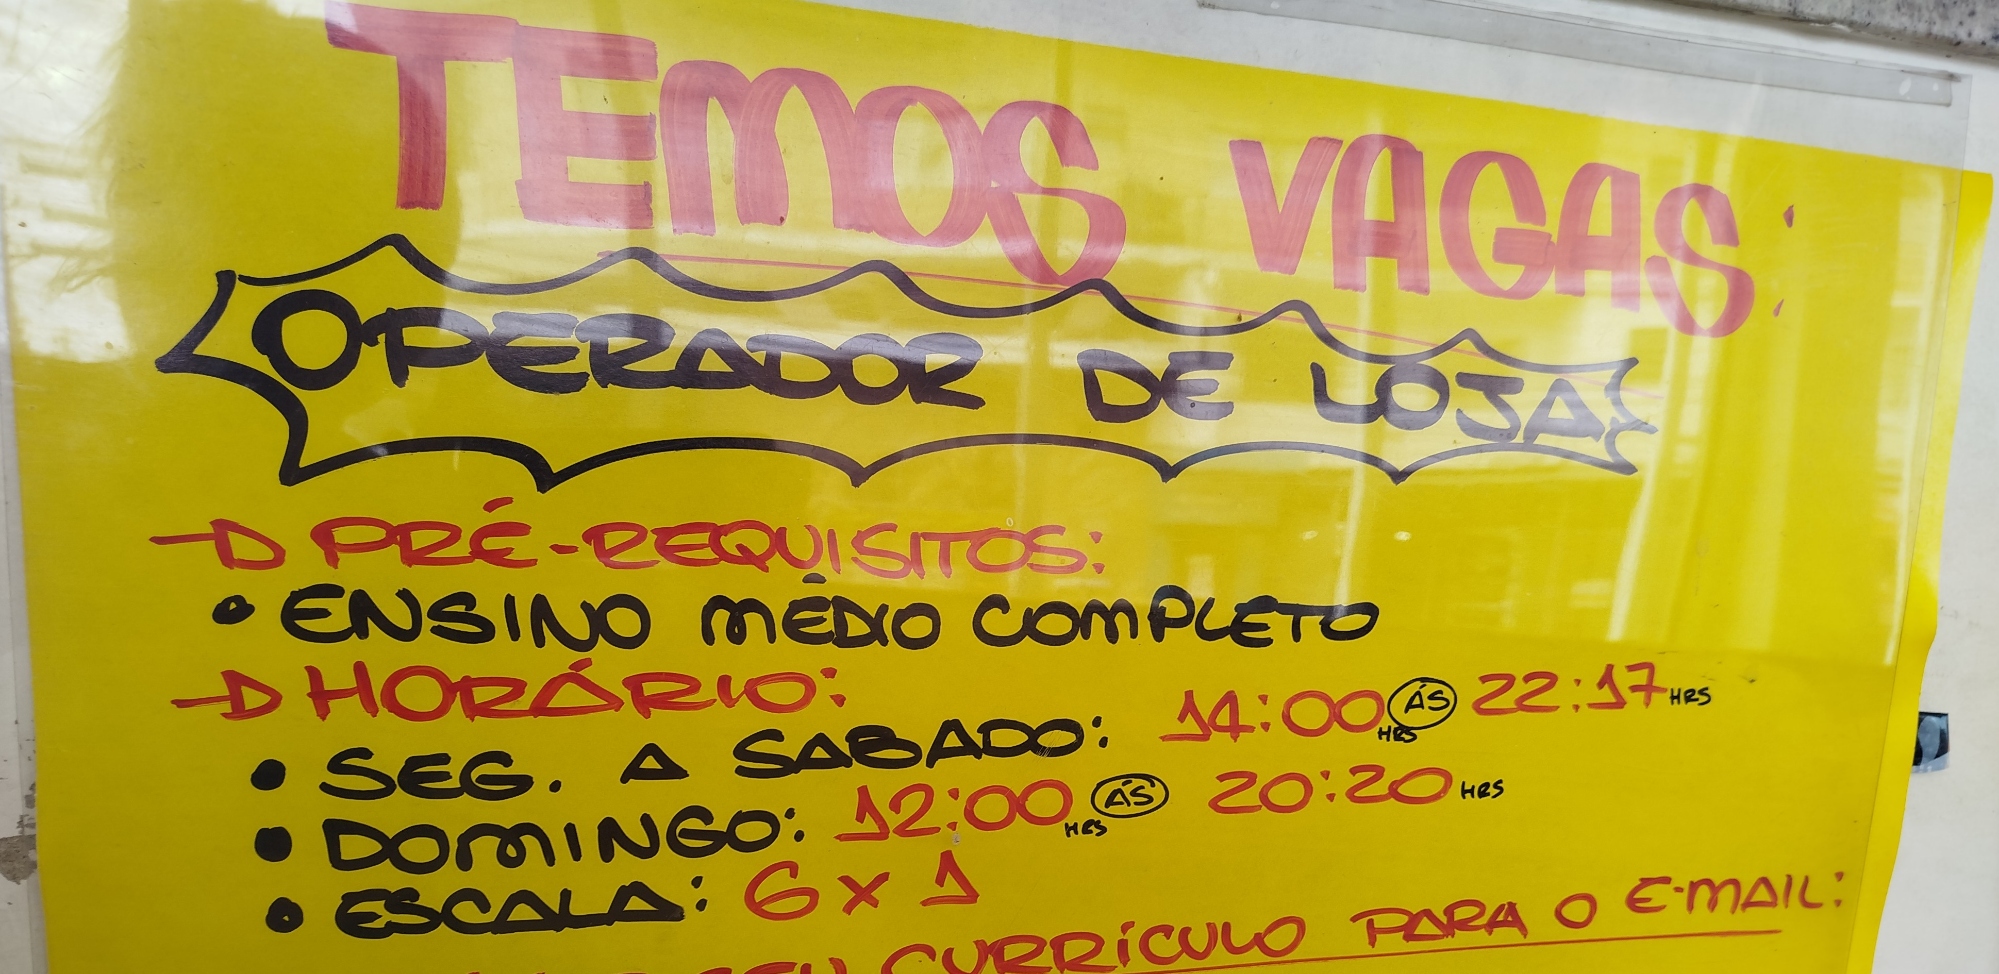 TEMOS VAGAS:
OPERADOR DE LOJA
PRÉ-REQUISITOS:
• ENSINO MÉDIO COMPLETO
HORÁRIO:
• SEG. A SABADO: 14:00 HRS ÁS 22:17 HRS
• DOMINGO: 12:00 HRS ÁS 20:20 HRS
• ESCALA: 6 x 1
SEU CURRÍCULO PARA O E-MAIL: